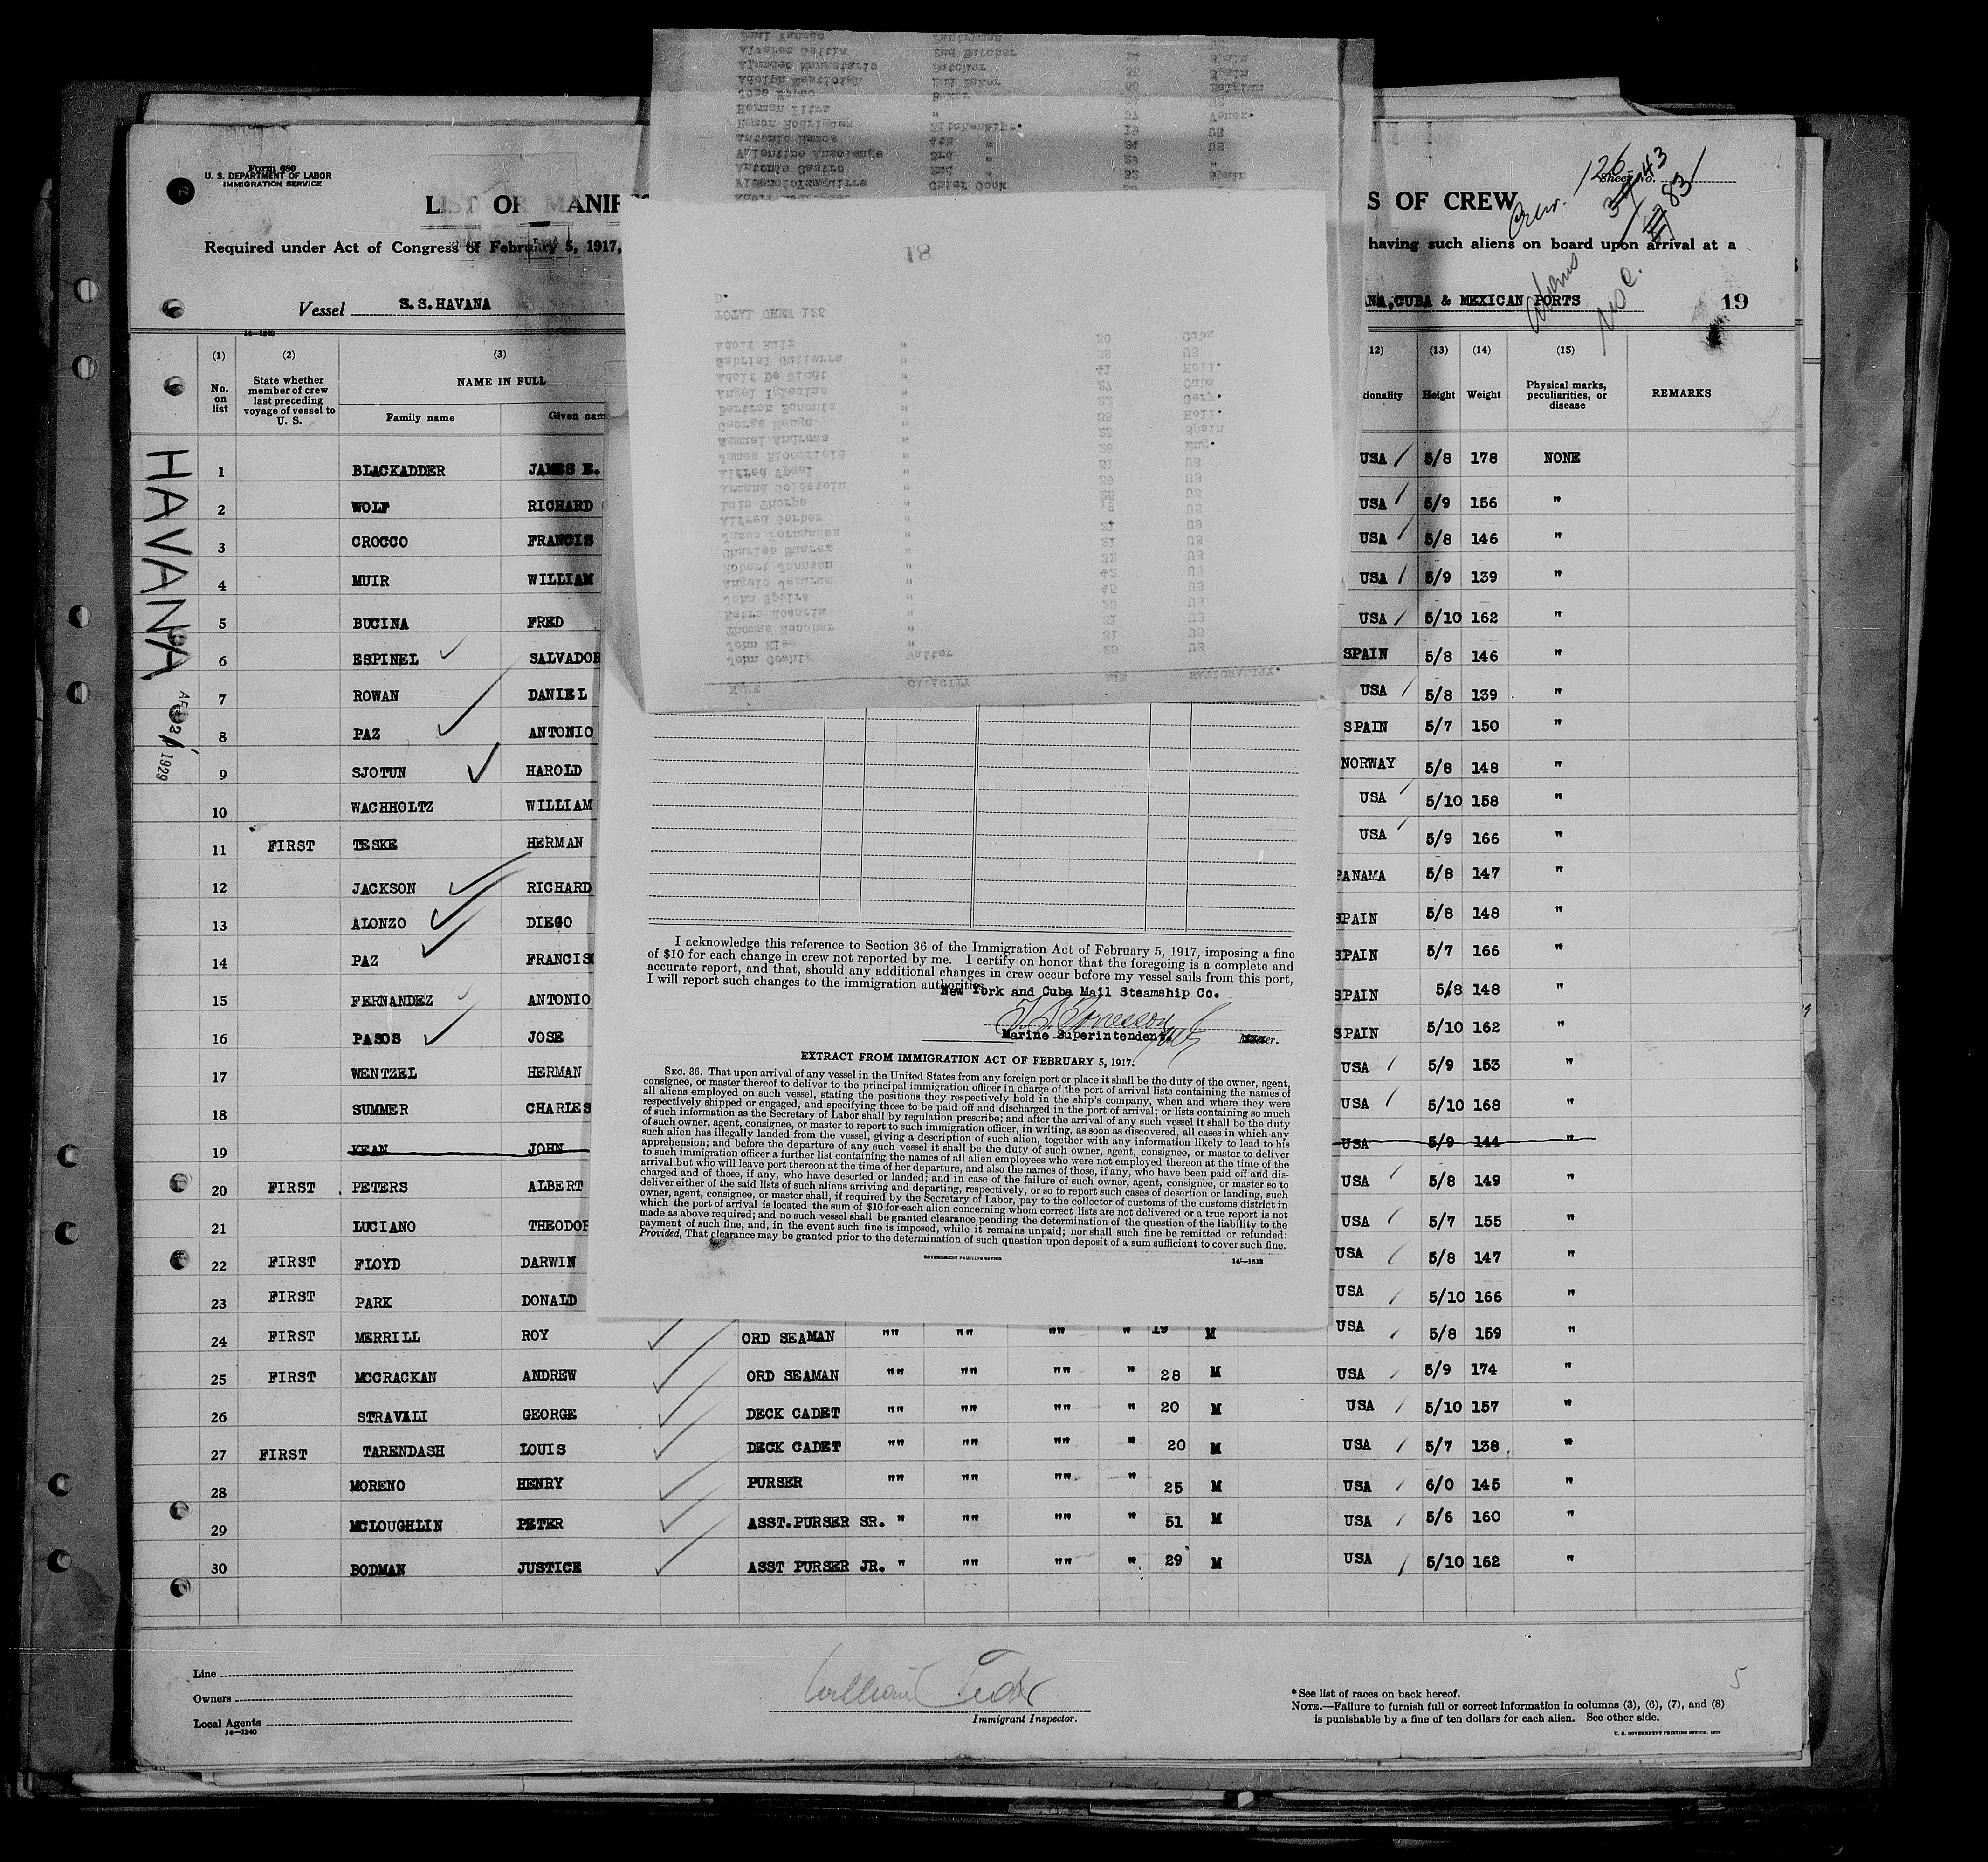 Form 680
U. S. DEPARTMENT OF LABOR
IMMIGRATION SERVICE
LIST OR MANIF
S OF CREW
Sheet No.
126
43
83
Required under Act of Congress of February 5, 1917,
having such aliens on board upon arrival at a
Vessel S.S.HAVANA
NA,CUBA & MEXICAN PORTS
19
14—1240
(1) (2) (3) 12) (13) (14) (15)
No. on list
State whether member of crew last preceding voyage of vessel to U. S.
NAME IN FULL
Family name Given nam
tionality Height Weight
Physical marks, peculiarities, or disease
REMARKS
HAVANA
1929
1 BLACKADDER JAMES E. USA 5/8 178 NONE
2 WOLF RICHARD USA 5/9 156 "
3 CROCCO FRANCIS USA 5/8 146 "
4 MUIR WILLIAM USA 5/9 139 "
5 BUCINA FRED USA 5/10 162 "
6 ESPINEL SALVADOR SPAIN 5/8 146 "
7 ROWAN DANIEL USA 5/8 139 "
8 PAZ ANTONIO SPAIN 5/7 150 "
9 SJOTUN HAROLD NORWAY 5/8 148 "
10 WACHHOLTZ WILLIAM USA 5/10 158 "
11 FIRST TESKE HERMAN USA 5/9 166 "
12 JACKSON RICHARD PANAMA 5/8 147 "
13 ALONZO DIEGO SPAIN 5/8 148 "
14 PAZ FRANCIS SPAIN 5/7 166 "
15 FERNANDEZ ANTONIO SPAIN 5/8 148 "
16 PASOS JOSE SPAIN 5/10 162 "
17 WENTZEL HERMAN USA 5/9 153 "
18 SUMMER CHARLES USA 5/10 168 "
19 KEAN JOHN USA 5/9 144 "
20 FIRST PETERS ALBERT USA 5/8 149 "
21 LUCIANO THEODOR USA 5/7 155 "
22 FIRST FLOYD DARWIN USA 5/8 147 "
23 FIRST PARK DONALD USA 5/10 166 "
24 FIRST MERRILL ROY ORD SEAMAN "" "" "" " 19 M USA 5/8 159 "
25 FIRST MCCRACKAN ANDREW ORD SEAMAN "" "" "" " 28 M USA 5/9 174 "
26 STRAVALI GEORGE DECK CADET "" "" "" " 20 M USA 5/10 157 "
27 FIRST TARENDASH LOUIS DECK CADET "" "" "" " 20 M USA 5/7 138 "
28 MORENO HENRY PURSER "" "" "" " 25 M USA 6/0 145 "
29 MCLOUGHLIN PETER ASST.PURSER SR. " "" "" " 51 M USA 5/6 160 "
30 BODMAN JUSTICE ASST PURSER JR. " "" "" " 29 M USA 5/10 162 "
Line
Owners
Local Agents
14—1240
Immigrant Inspector.
*See list of races on back hereof.
NOTE.—Failure to furnish full or correct information in columns (3), (6), (7), and (8)
is punishable by a fine of ten dollars for each alien. See other side.
U. S. GOVERNMENT PRINTING OFFICE: 1928
5
NAME CAPACITY AGE NATIONALITY.
John Coshig Waiter 25 US
John Klee " 31 US
Thomas Escobar " 31 US
John Speirs " 45 US
Robert Johnson " 32 US
Charles Suarez " 21 US
James Fernandez " US
Alfred Gorber " US
Luis Thorpe " US
Armand Goldstein " 39 US
James Bloomfield " 26 Eng.
Manuel Andrews " 25 Spain
George Menge " Holl.
Angel Iglesias " 27 Cuba
Adolf De Windt " 41 Holl.
Gabriel Gutierra " US
Adolf Ruiz " 30 Cuba
TOTAL CREW 126
D.
18
Chief Cook
Antonio Castro 2nd " 32 Spain
Valentine Anzoleage 3rd " 29 "
Antonio Ramos 4th " US
Ramon Rodriguez Kitchenhlpr. 19 US
Herman Pitre " 37 Venez.
Baker
2nd Baker 50 Belgium
Butcher 35 Spain
2nd Butcher Spain
I acknowledge this reference to Section 36 of the Immigration Act of February 5, 1917, imposing a fine
of $10 for each change in crew not reported by me. I certify on honor that the foregoing is a complete and
accurate report, and that, should any additional changes in crew occur before my vessel sails from this port,
I will report such changes to the immigration authorities.
New York and Cuba Mail Steamship Co.
Marine Superintendent.
Master.
EXTRACT FROM IMMIGRATION ACT OF FEBRUARY 5, 1917.
SEC. 36. That upon arrival of any vessel in the United States from any foreign port or place it shall be the duty of the owner, agent,
consignee, or master thereof to deliver to the principal immigration officer in charge of the port of arrival lists containing the names of
all aliens employed on such vessel, stating the positions they respectively hold in the ship's company, when and where they were
respectively shipped or engaged, and specifying those to be paid off and discharged in the port of arrival; or lists containing so much
of such information as the Secretary of Labor shall by regulation prescribe; and after the arrival of any such vessel it shall be the duty
of such owner, agent, consignee, or master to report to such immigration officer, in writing, as soon as discovered, all cases in which any
such alien has illegally landed from the vessel, giving a description of such alien, together with any information likely to lead to his
apprehension; and before the departure of any such vessel it shall be the duty of such owner, agent, consignee, or master to deliver
to such immigration officer a further list containing the names of all alien employees who were not employed thereon at the time of the
arrival but who will leave port thereon at the time of her departure, and also the names of those, if any, who have been paid off and dis-
charged and of those, if any, who have deserted or landed; and in case of the failure of such owner, agent, consignee, or master so to
deliver either of the said lists of such aliens arriving and departing, respectively, or so to report such cases of desertion or landing, such
owner, agent, consignee, or master shall, if required by the Secretary of Labor, pay to the collector of customs of the customs district in
which the port of arrival is located the sum of $10 for each alien concerning whom correct lists are not delivered or a true report is not
made as above required; and no such vessel shall be granted clearance pending the determination of the question of the liability to the
payment of such fine, and, in the event such fine is imposed, while it remains unpaid; nor shall such fine be remitted or refunded:
Provided, That clearance may be granted prior to the determination of such question upon deposit of a sum sufficient to cover such fine.
GOVERNMENT PRINTING OFFICE
14—1613